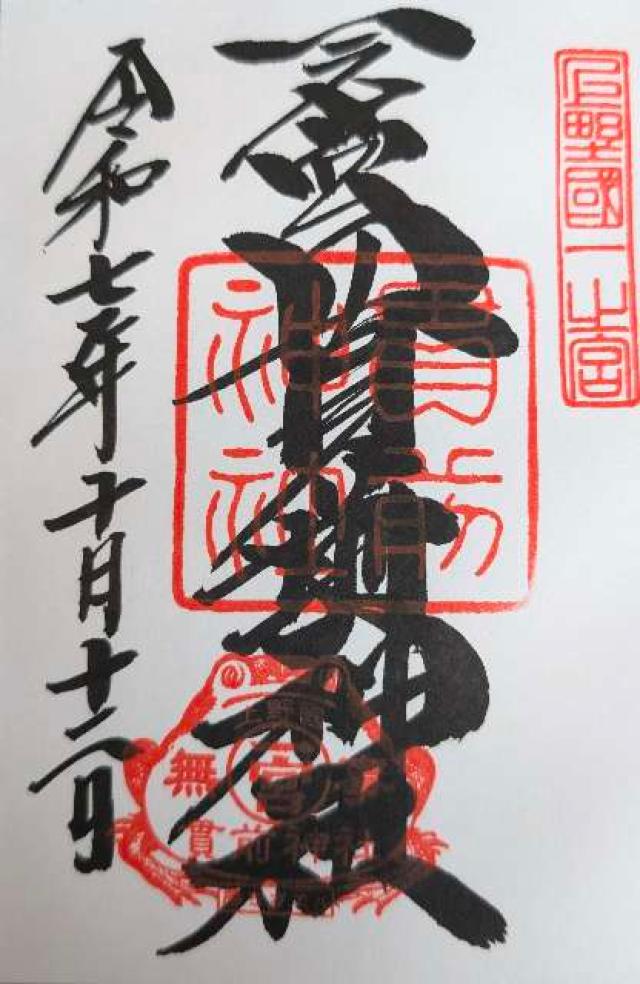 上野國一之宮
一之宮貫前神社
貫前
神社
上野國
無
貫前神社
令和七年十月十二日